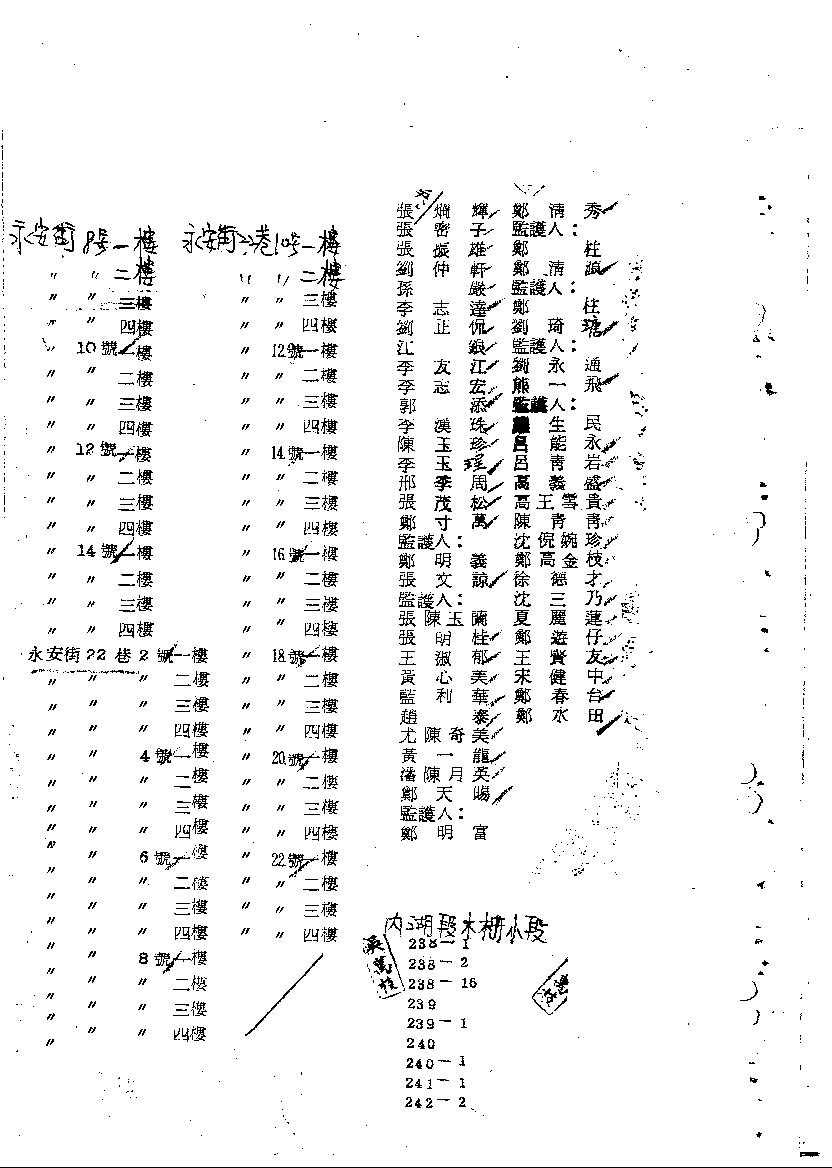 永安街8号一樓
〃 〃 二樓
〃 〃 三樓
〃 〃 四樓
〃 10號一樓
〃 〃 二樓
〃 〃 三樓
〃 〃 四樓
〃 12號一樓
〃 〃 二樓
〃 〃 三樓
〃 〃 四樓
〃 14號一樓
〃 〃 二樓
〃 〃 三樓
〃 〃 四樓
永安街22巷2號一樓
〃 〃 〃 二樓
〃 〃 〃 三樓
〃 〃 〃 四樓
〃 〃 4號一樓
〃 〃 〃 二樓
〃 〃 〃 三樓
〃 〃 〃 四樓
〃 〃 6號一樓
〃 〃 〃 二樓
〃 〃 〃 三樓
〃 〃 〃 四樓
〃 〃 8號一樓
〃 〃 〃 二樓
〃 〃 〃 三樓
〃 〃 〃 四樓
永安街22巷10号一樓
〃 〃 二樓
〃 〃 三樓
〃 〃 四樓
〃 12號一樓
〃 〃 二樓
〃 〃 三樓
〃 〃 四樓
〃 14號一樓
〃 〃 二樓
〃 〃 三樓
〃 〃 四樓
〃 16號一樓
〃 〃 二樓
〃 〃 三樓
〃 〃 四樓
〃 18號一樓
〃 〃 二樓
〃 〃 三樓
〃 〃 四樓
〃 20號一樓
〃 〃 二樓
〃 〃 三樓
〃 〃 四樓
〃 22號一樓
〃 〃 二樓
〃 〃 三樓
〃 〃 四樓
張炳輝
張密子
張振雄
劉仲軒
孫嚴
李志達
劉正侃
江銀
李友江
李志宏
郭添
李漢珠
陳玉珍
李玉瑶
邢季周
張茂松
鄭寸萬
監護人：
鄭明義
張文諒
監護人：
張陳玉蘭
張明桂
王淑郁
黃心美
藍利華
趙泰
尤陳奇美
黃一龍
潘陳月英
鄭天賜
監護人：
鄭明富
鄭清秀
監護人：
鄭柱
鄭清源
監護人：
鄭柱
劉琦瑭
監護人：
劉永通
熊一飛
監護人：
生民
呂能永
呂靑岩
高義盛
高王雪貴
陳靑靑
沈倪婉珍
鄭高金枝
徐德才
沈三乃
夏麗蓮
鄭遊仔
王賢友
宋健中
鄭春台
鄭水田
内湖段木柵小段
238-1
238-2
238-16
239
239-1
240
240-1
241-1
242-2